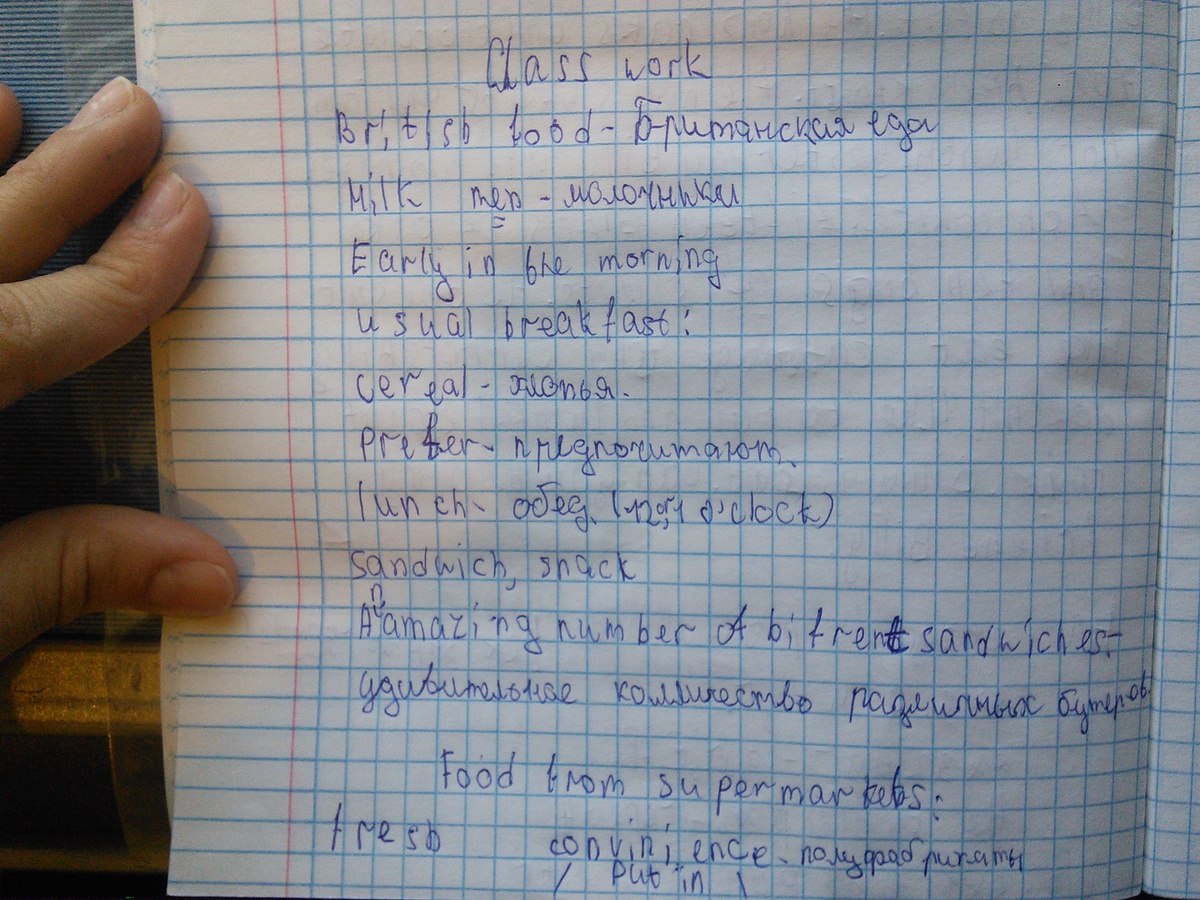 Class work
British food - Британская еда
Milk men - молочники
Early in the morning
usual breakfast:
cereal - хлопья.
Prefer - предпочитают.
lunch - обед. (12, 1 o'clock)
sandwich, snack
An amazing number of bifrent sandwiches -
удивительное колличество различных бутеров.
Food from supermarkets:
fresh convinience - полуфабрикаты
/ Put in \